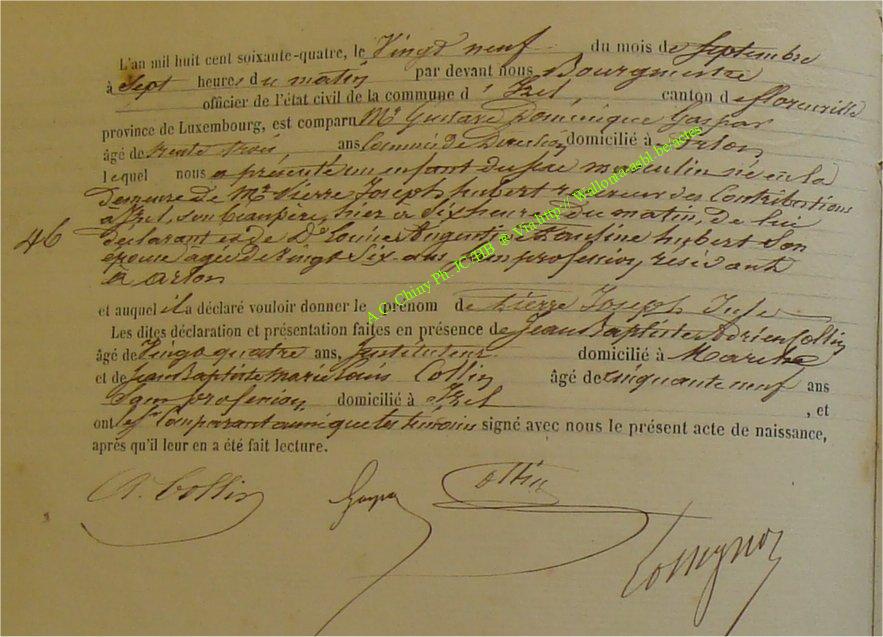 L'an mil huit cent soixante-quatre, le Vingt neuf du mois de Septembre
à Sept heures du matin par devant nous Bourgmestre
officier de l'état civil de la commune d' Izel, canton de florenville
province de Luxembourg, est comparu Mr Gustave Dominique Gaspar
âgé de trente trois ans Commis de Direction, domicilié à Arlon,
lequel nous a présenté un enfant du sexe masculin né en la
Demeure de Mr Pierre Joseph hubert receveur des Contributions
a Izel, son beaupère, hier a Six heures du matin, de lui
déclarant et de De Louise Argentine Pauline hubert Son
46
épouse agée de Vingt Six ans, Sans profession, résidante
a arlon
et auquel il a déclaré vouloir donner le prénom de Pierre Joseph Jule
Les dites déclaration et présentation faites en présence de Jean Baptiste Adrien Collin
âgé de Vingt quatre ans, Instituteur domicilié à
et de Jean Baptiste Marie Louis Collin âgé de cinquante neuf ans
Sans profession, domicilié à Izel , et
ont comparant ainsi que les témoins signé avec nous le présent acte de naissance,
après qu'il leur en a été fait lecture.
A. Collin Gaspar Collin
A.C. Chiny Ph. JC HB @ Via http:// Wallonia-asbl.be/actes